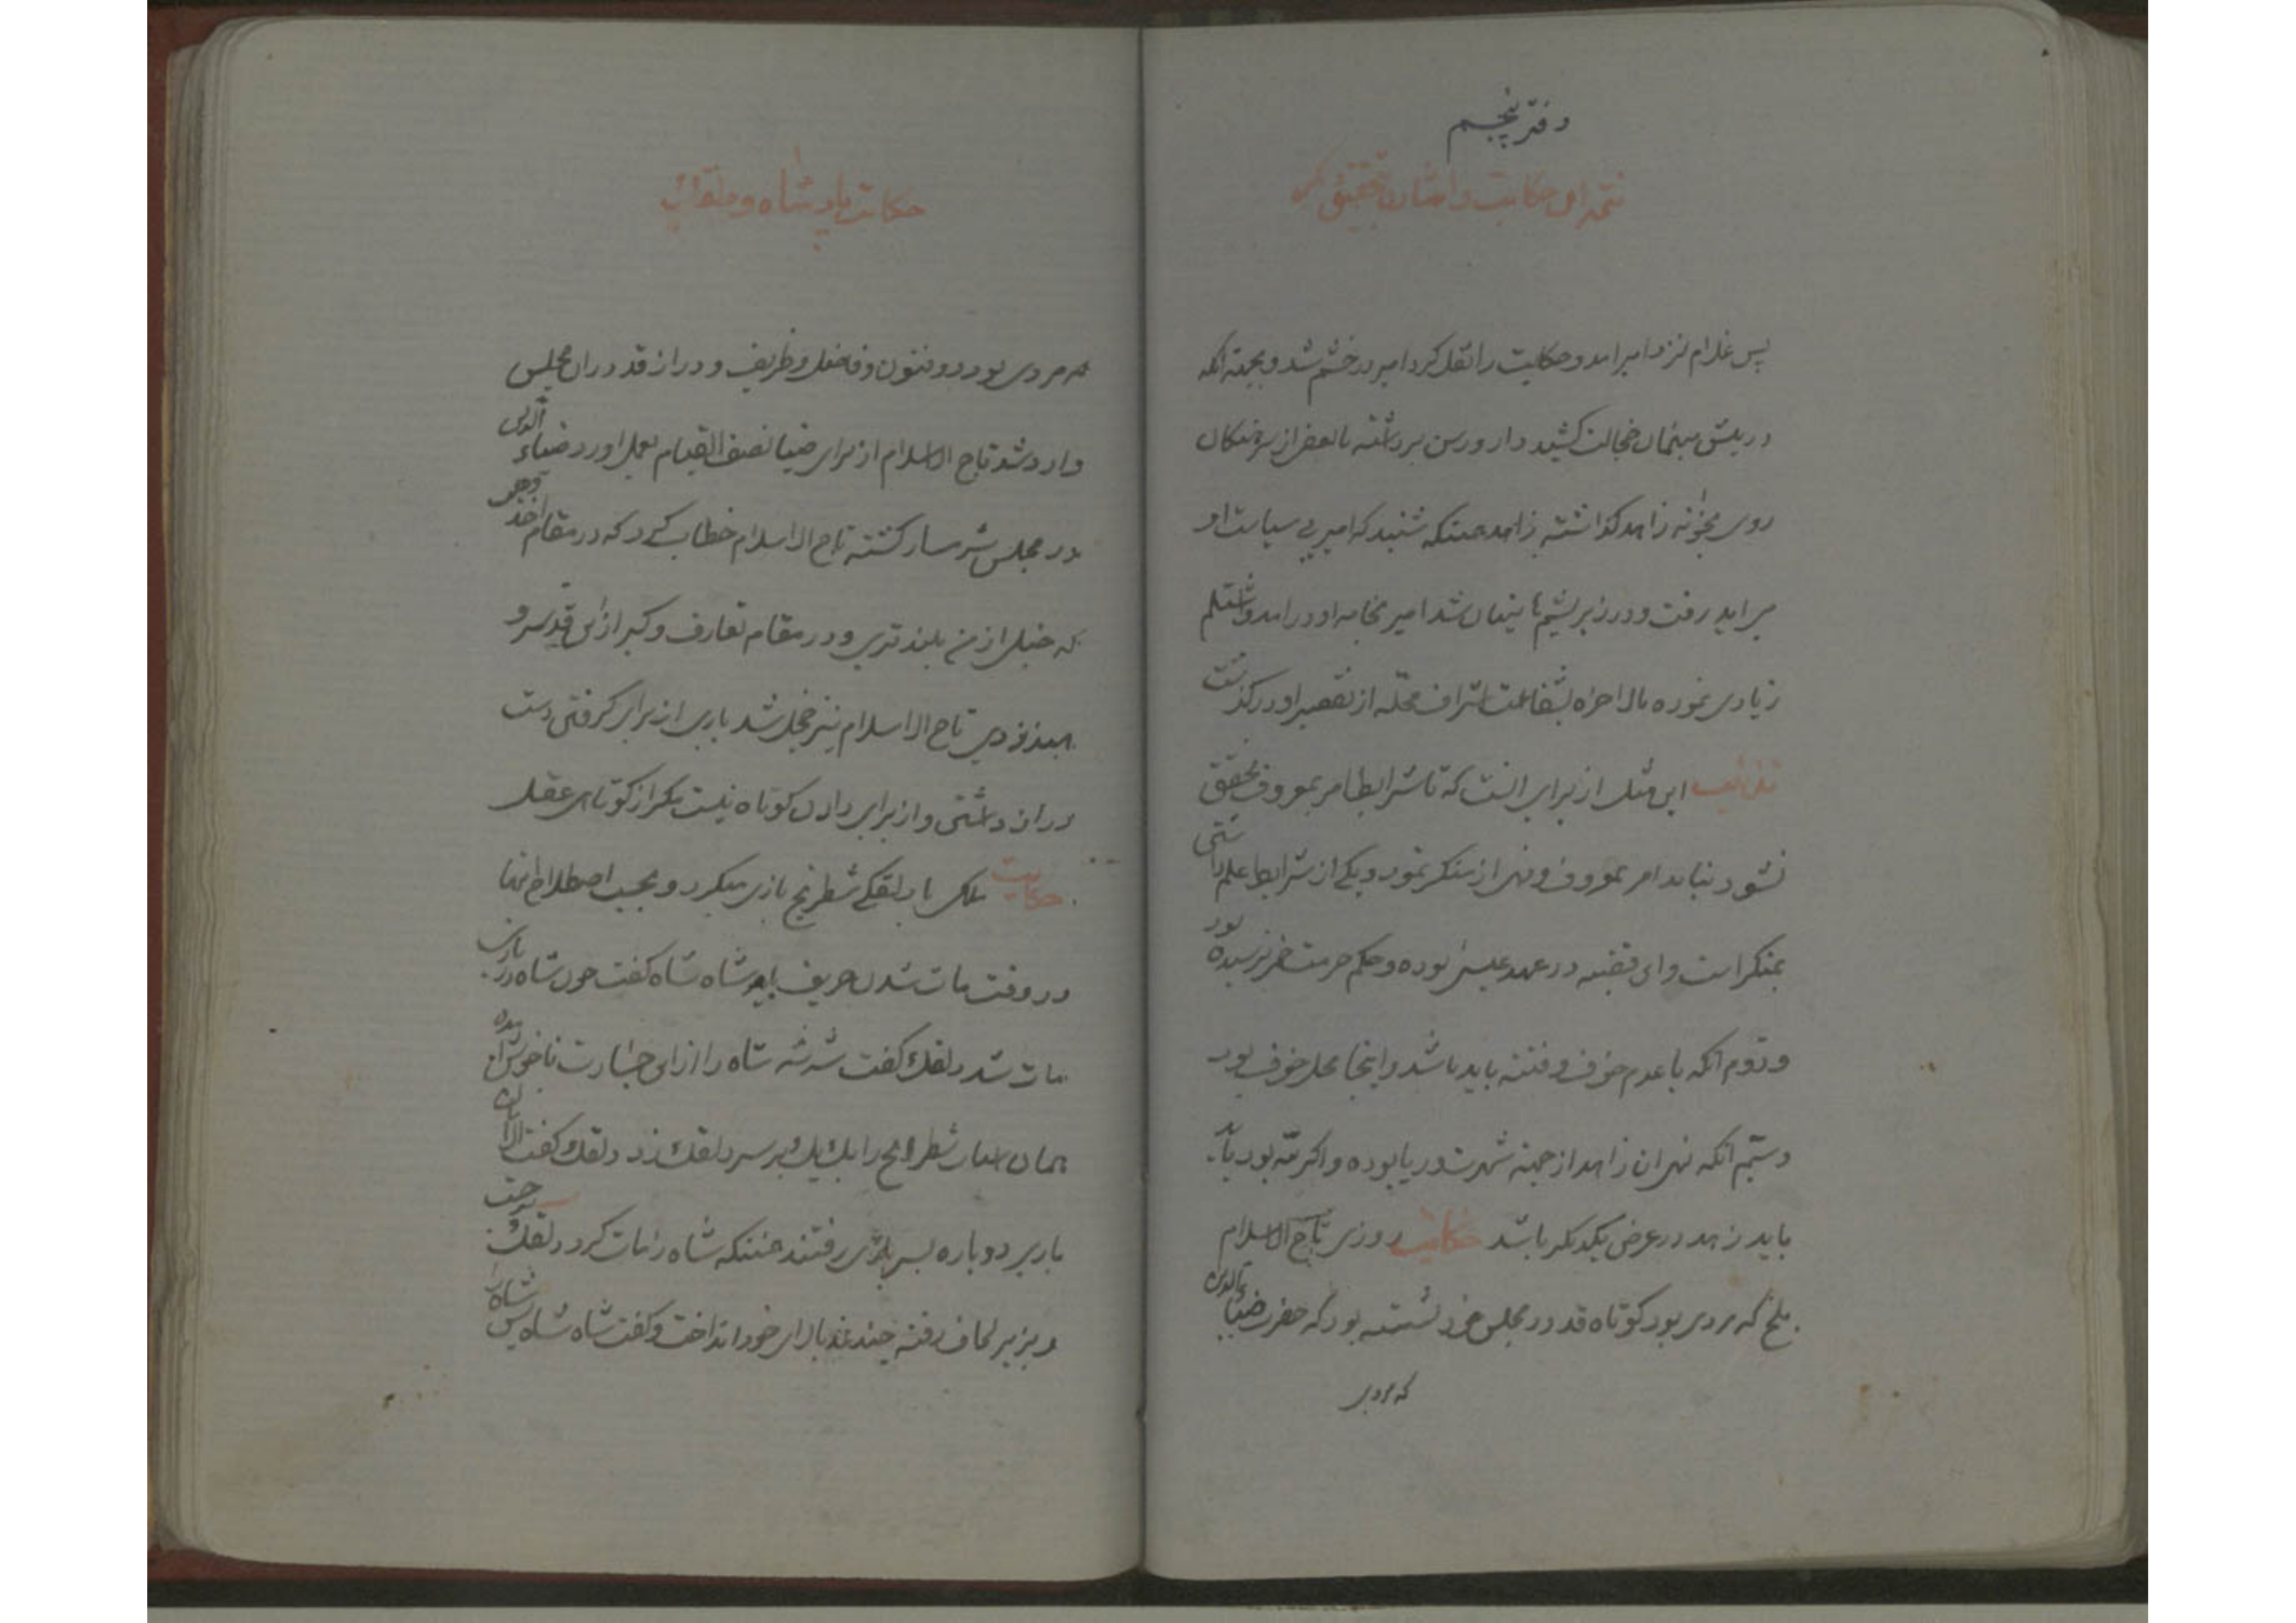 دفتر پنجم
تتمه این حکایت و اشارت تحقیقی
پس غلام نزد امیر امد و حکایت را نقل کرد امیر در خشم شد و بجهته انکه
در پیش میهمان خجالت کشید دار و رسن برداشته با بعضی از سرهنکان
روی بخوانه زاهد کذاشته زاهد همینکه شنید که امیر پی سیاست او
می اید رفت و در زیر پشم ها پنهان شد امیر بخانه او در امد و اشتلم
زیادی نموده بالاخره بشفاعت اشراف محله از تقصیر او در کذشت
تذنیب این مثل از برای انست که تا شرایط امر بمعروف محقق
نشود نباید امر بمعروف و نهی از منکر نمود و یکی از شرایط علم داشتن
بمنکر است و این قضیه در عهد عیسی بوده و حکم حرمت خمر نرسیده بود
و دوم انکه با عدم خوف و فتنه باید باشد و اینجا محل خوف بود
و سیم انکه نهی ان زاهد از جهته شهرت و ریا بوده و اکر نه بود
باید زهد در عرض یکدیکر باشد حکایت روزی تاج الاسلام
بلخ که مردی بود کوتاه قد در مجلس خود نشسته بود که حضرت ضیاء الدین
که مردی
حکایت پادشاه و دلقک
که مردی بود ذو فنون و فاضل و ظریف و دراز قد در ان مجلس
وارد شد تاج الاسلام از برای ضیا نصف القیام بعمل اورد ضیاء الدین
در مجلس شرمسار کشته تاج الاسلام خطاب کرد که در مقام اخذ وجوه
که خیلی از من بلند تری و در مقام تعارف و کبر از این قد سرو
تاج الاسلام نیز خجل شد باری از برای کرفتن دست
دراز داشتن و از برای دادن کوتاه نیست مکر از کوتاهی عقل
حکایت ملکی با دلقکی شطرنج بازی میکرد و بحسب اصطلاح انها
در وقت مات شدن حریف باید شاه شاه کفت چون شاه در بازی
مات شد دلقک کفت شه شه شاه را از این جسارت ناخوش امده
همان اسباب شطرنج را یک یک بر سر دلقک زد دلقک کفت الامان
باری دوباره بسر بازی رفتند همینکه شاه را مات کرد دلقک برجست
و بزیر لحاف رفته چند نمد بالای خود انداخت و کفت شاه شاه پس شاه را